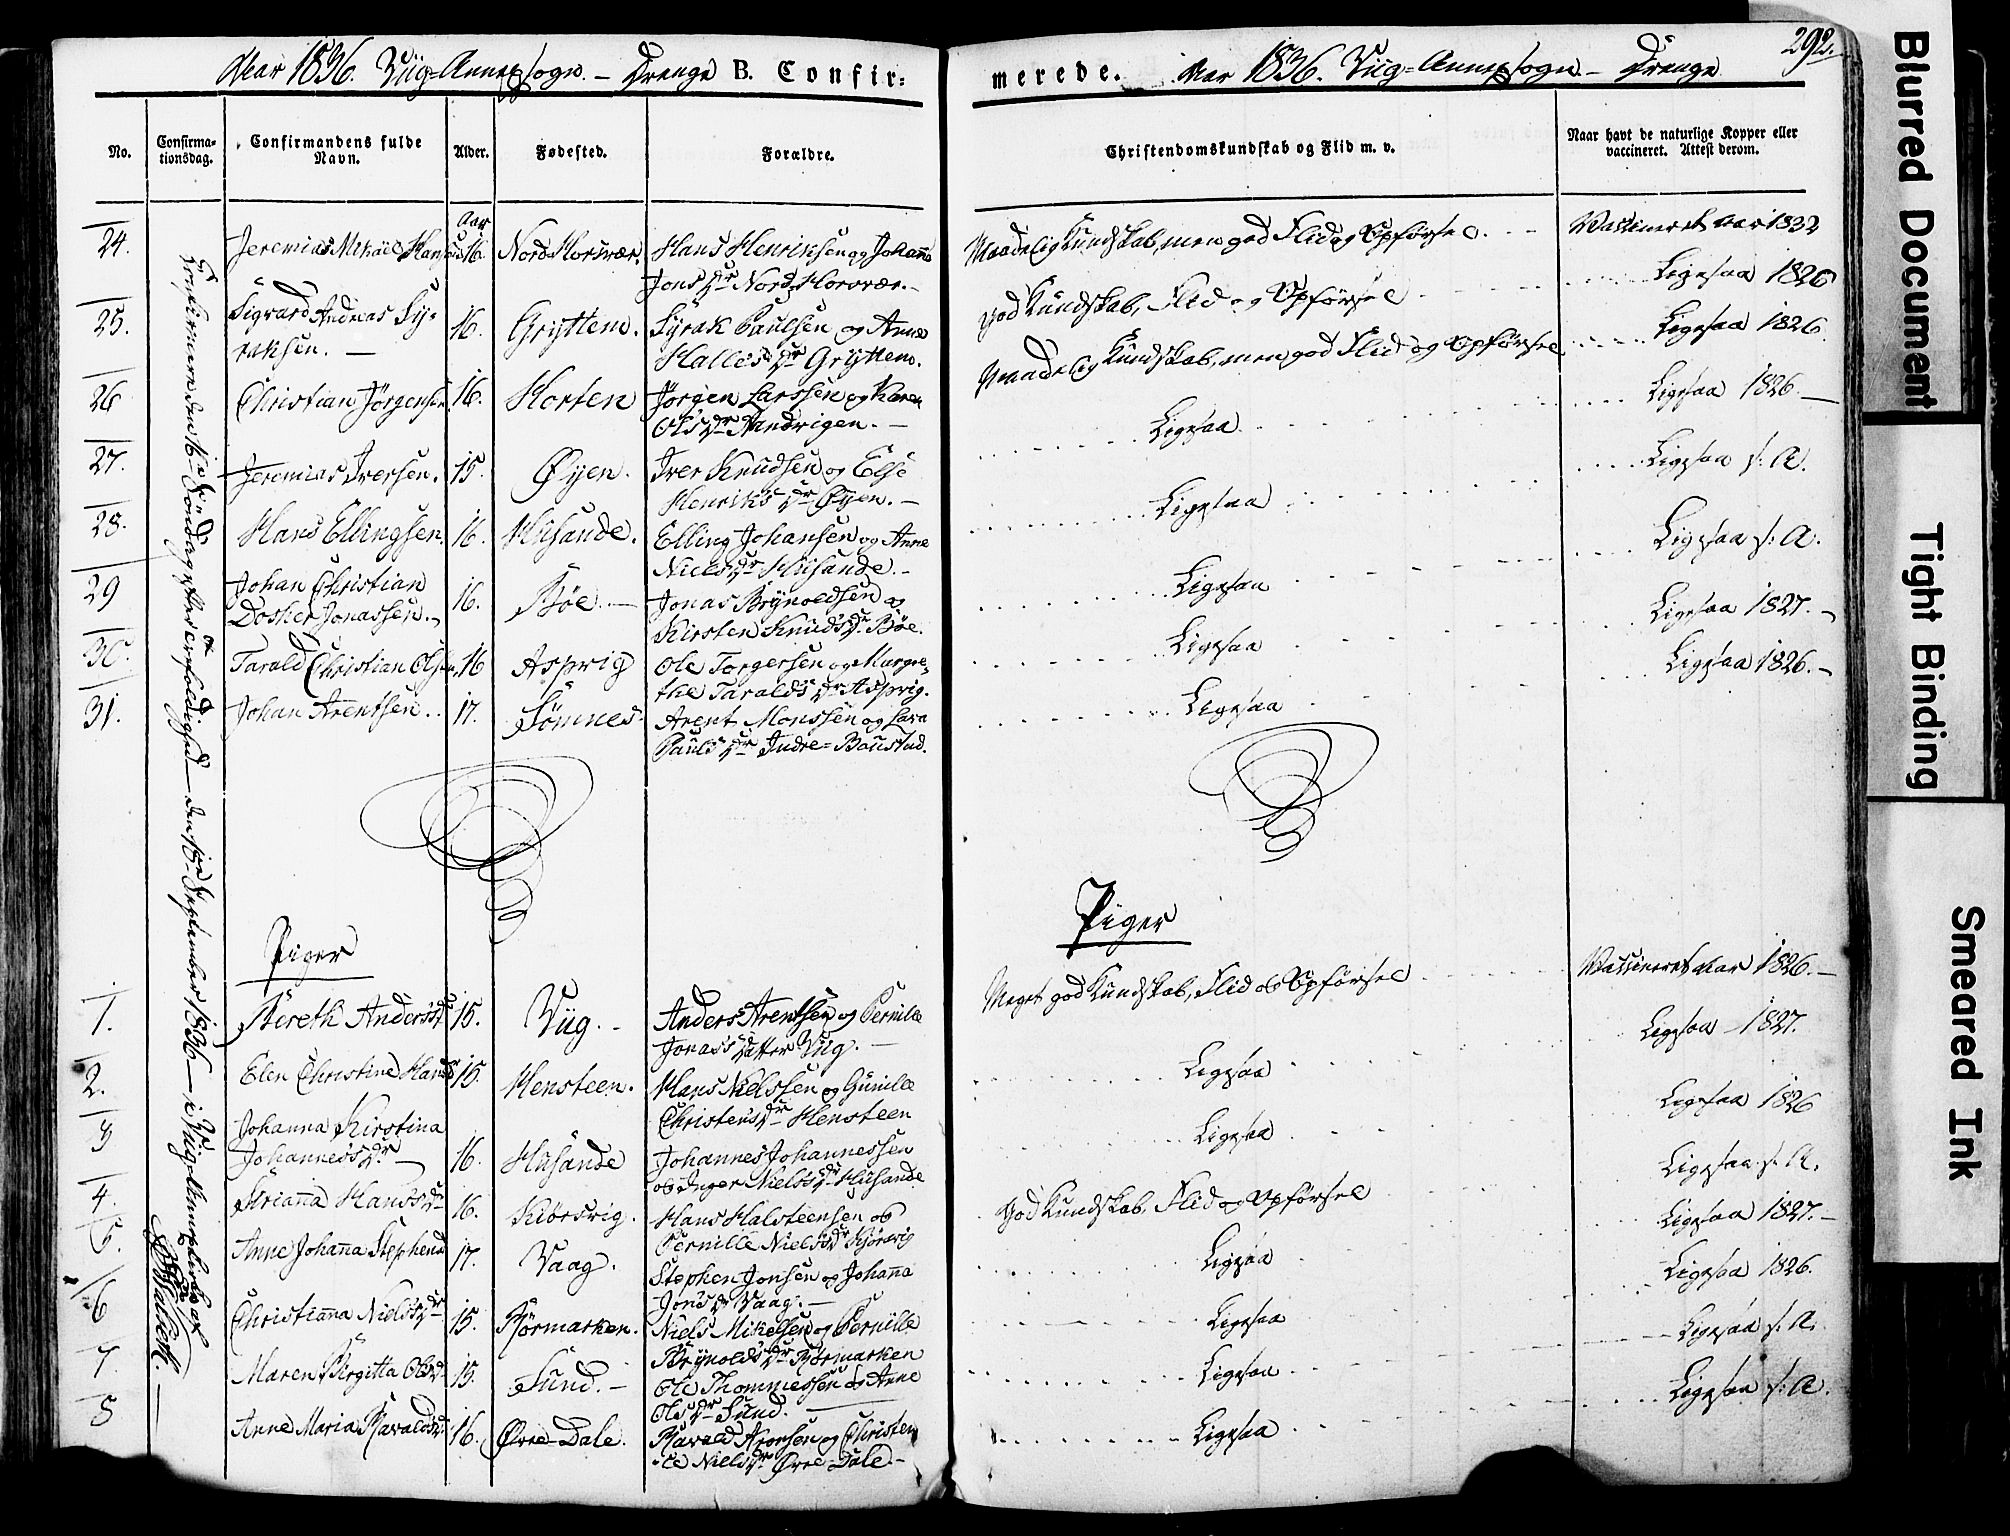 Aar 1836. Viig-Annexsogn. – Drenge B. Confir-
merede. Aar 1836. Viig-Annexsogn – Drenge
292.
No.
Confirma-
tionsdag.
Confirmandens fulde
Navn.
Alder.
Fødested.
Forældre.
Christendomskundskab og Flid m. v.
Naar havt de naturlige Kopper eller
vaccineret. Attest derom.
Aar
24. Jeremias Mikael Hansen 16. Nord Horsvær. Hans Henriksen og Johanna
Jons Dr Nord Horsvær. –
Maadelig Kundskab, men god Flid og Opførsel. Vaccineret Aar 1832
25. Sigvard Andreas Sy- 16. Gryttem. Syrak Paulsen og Anne
raksen. – Halles Dr Gryttem.
god Kundskab, Flid og Opførsel Ligesaa 1826
26 Christian Jørgensen 16. Horten Jørgen Larssen og Karen
Ols Dr Tandrigen. –
Maadelig Kundskab, men god Flid og Opførsel Ligesaa 1826.
27. Jeremias Iversen. 15. Øyen. Iver Knudsen og Else
Henriks Dr Øyen. –
Ligesaa Ligesaa 1826. –
28. Hans Ellingsen. 16. Husande. Elling Johansen og Anne
Niels Dr Husande. –
Ligesaa Ligesaa s: A.
29 Johan Christian
Dosker Jonassen. 16. Bøe. – Jonas Brynoldsen og
Kirsten Knuds Dr Bøe.
Ligesaa Ligesaa s: A.
30. Tarald Christian Olsen 16 Aspvig Ole Torgersen og Margre-
the Taralds Dr Aspvig.
Ligesaa Ligesaa 1827. –
31. Johan Arentsen. 17. Sømnes. Arent Monssen og Lava
Pauls Dr Indre-Baustad.
Ligesaa Ligesaa 1826. –
Confirmerede den 16de Søndag efter Trefoldighed – den 18de September 1836 – i Viig Annexkirke af
Piger
Piger
1. Bereth Anders Dr 15. Viig. – Anders Arentsen og Pernille
Jonas Datter Viig. –
Meget god Kundskab, Flid og Opførsel Vaccineret Aar 1826. –
2. Elen Christine Hans Dr 15. Hensteen. Hans Nielssen og Gunille
Christens Dr Hensteen
Ligesaa Ligesaa 1827.
3 Johanna Kirstina
Johanness Dr – 16. Husande Johannes Johannessen
og Inger Niels Dr Husande
Ligesaa Ligesaa 1826
4. Ariana Hans Dr 16. Kiørsvig. Hans Halsteensen og
Pernille Niels Dr Kjørsvig
god Kundskab, Flid og Opførsel Ligesaa s: A.
5. Anne Johanna Stephens 17. Vaag. Stephen Jonsen og Johanna
Jons Dr Vaag. –
Ligesaa Ligesaa 1827. –
6 Christianna Niels Dr 15. Rørmarken. Niels Mikelsen og Pernille
Brynolds Dr Rørmarken
Ligesaa Ligesaa 1826.
7 Maren Birgitta Ols Dr 15. Sund. – Ole Thommessen og Anne
Ols Dr Sund. –
Ligesaa Ligesaa s: A.
8 Anne Maria Ravalds Dr 16. Øvre-Dale. Ravald Aronsen og Christen
Niels Dr Øvre-Dale. –
Ligesaa Ligesaa s: A.
Blurred Document
Tight Binding
Smeared Ink